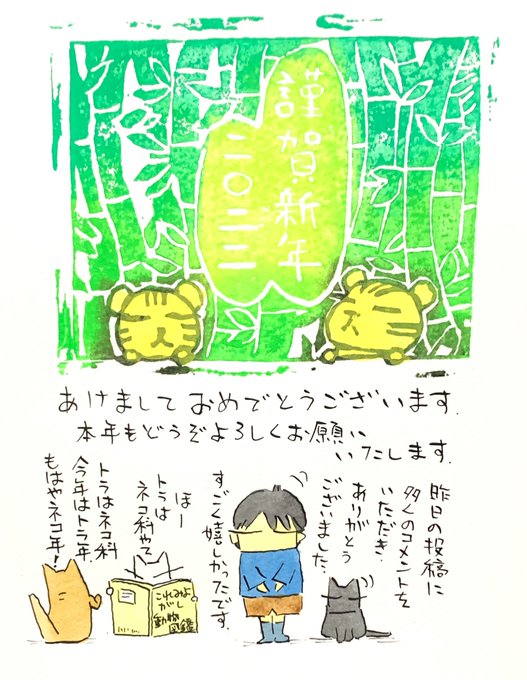 謹賀新年
二〇二二
あけましておめでとうございます.
本年もどうぞよろしくお願い
いたします.
昨日の投稿に
多くのコメントを
いただき.
ありがとう
ございました.
すごく嬉しかったです.
ほー
トラは
ネコ科やて
これみよ
がし
動物
図鑑
トラはネコ科
今年はトラ年.
もはやネコ年!